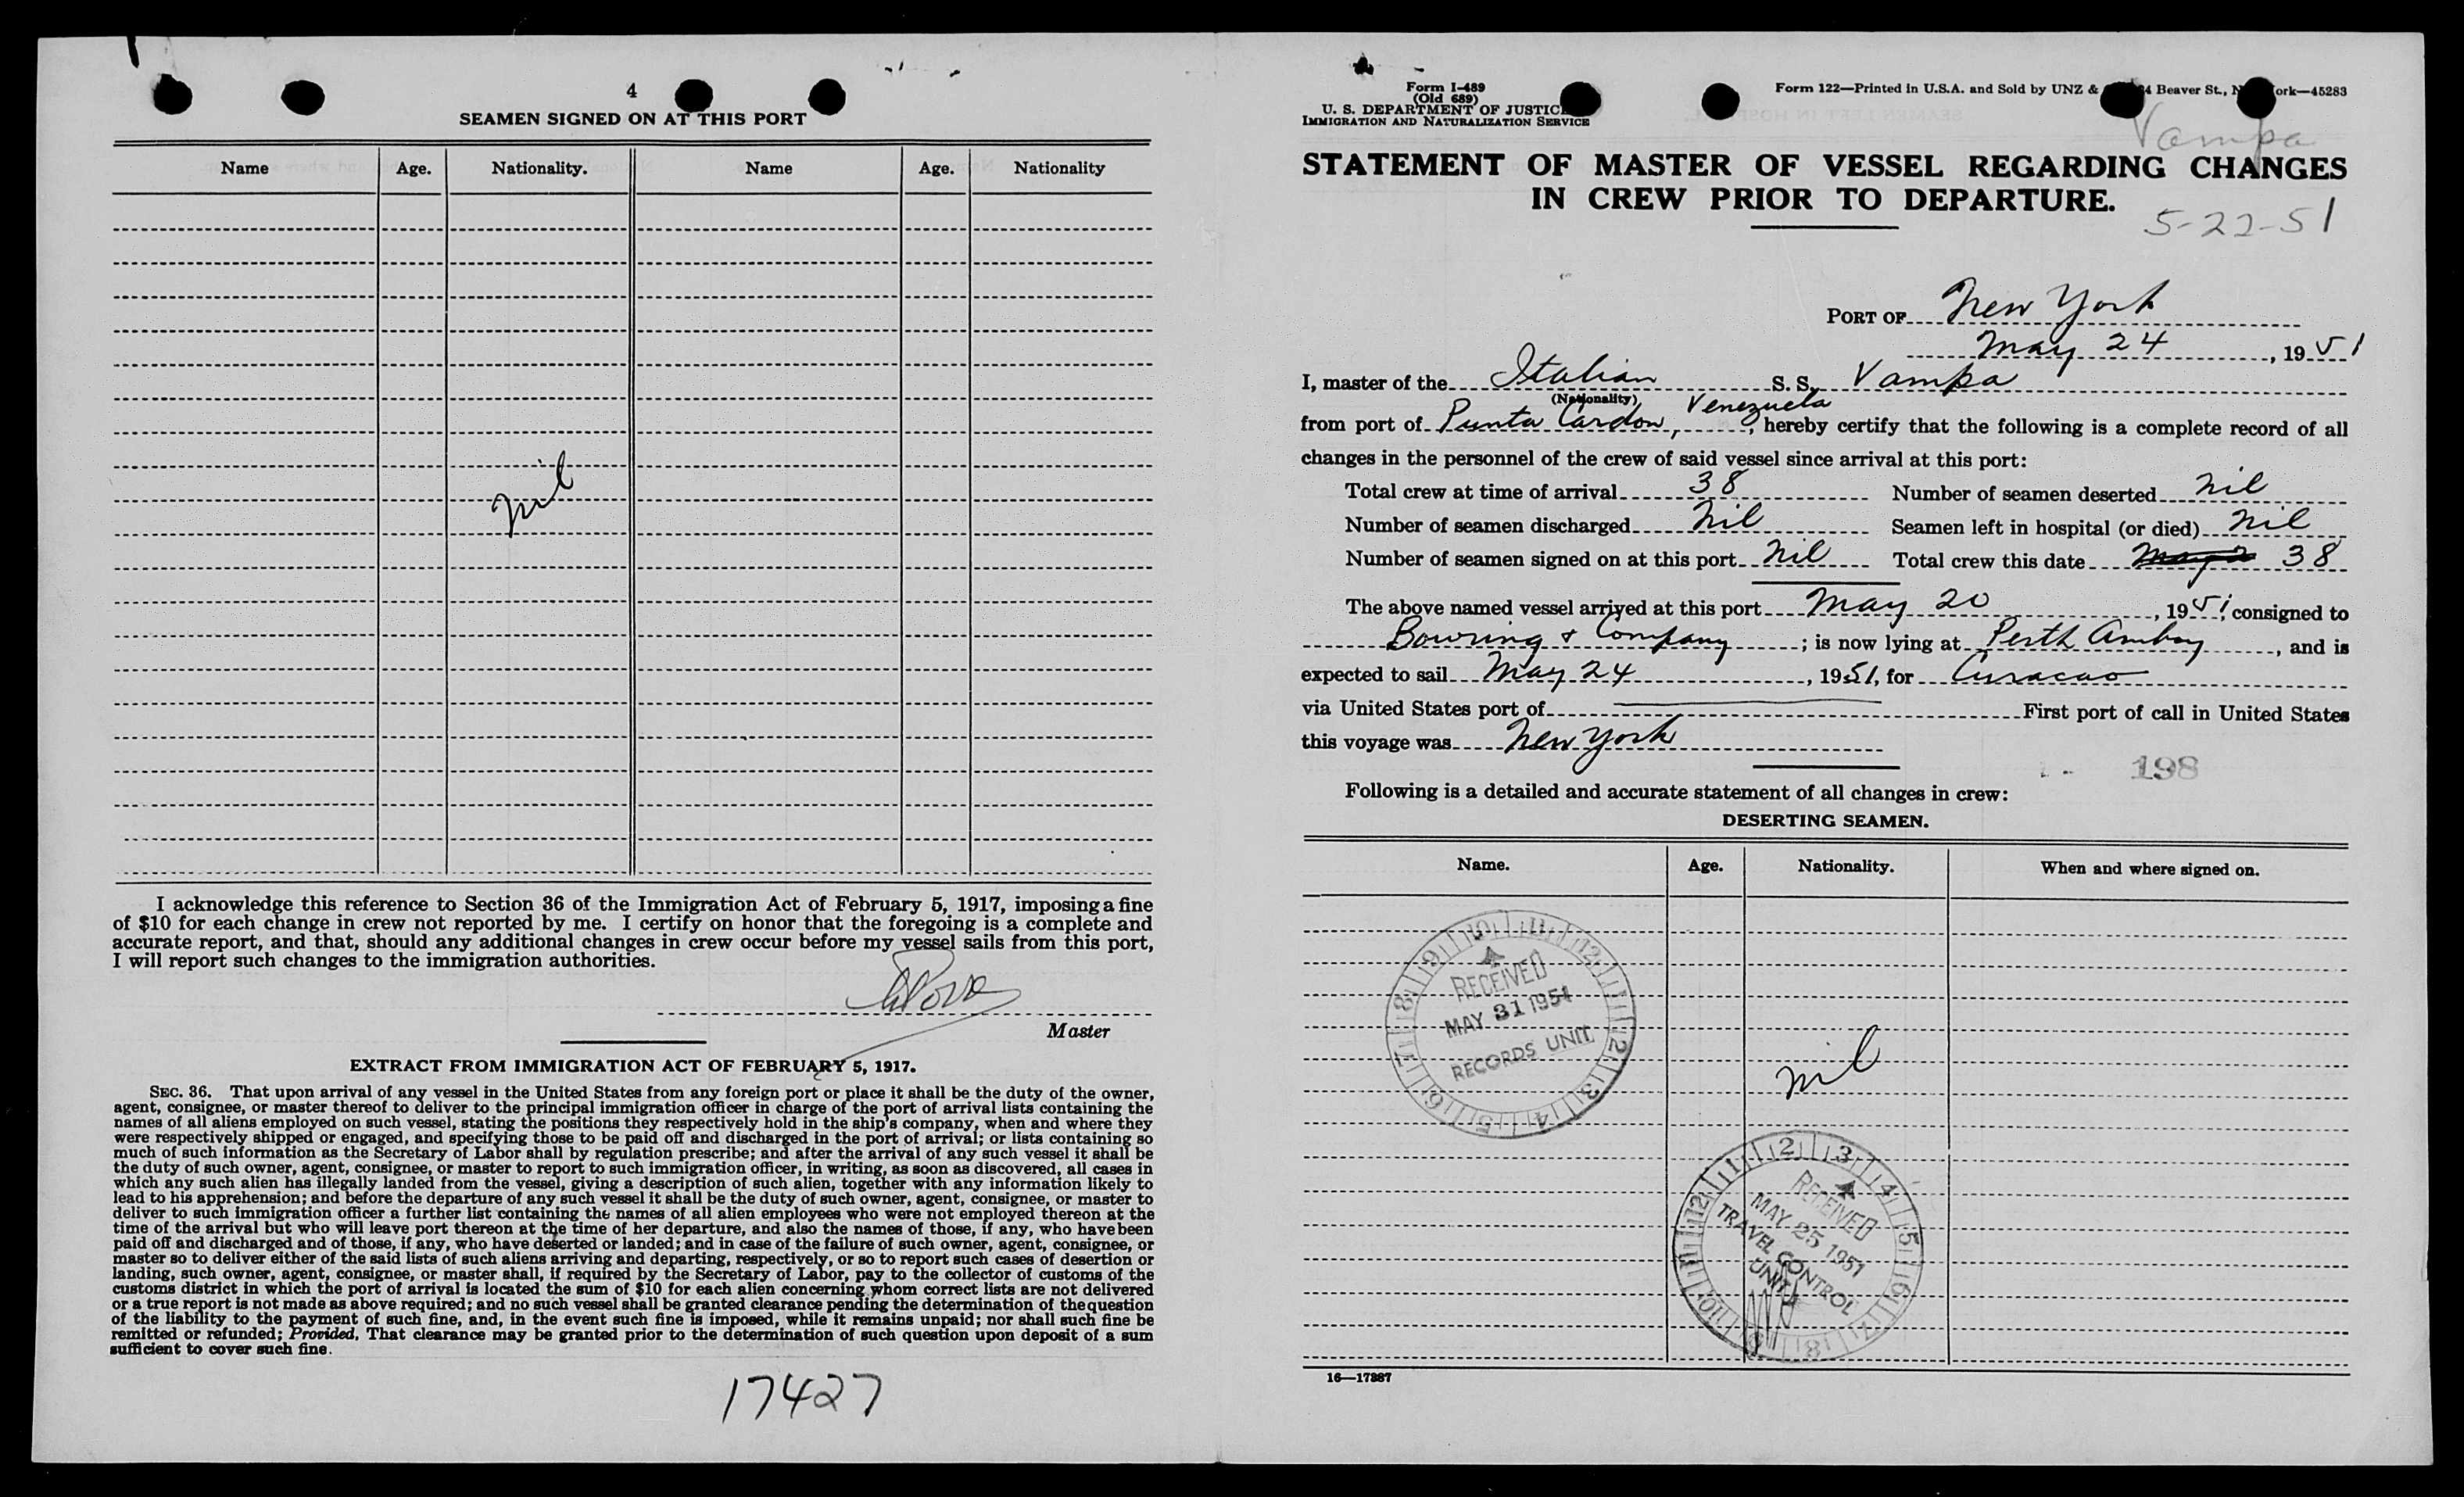 4
SEAMEN SIGNED ON AT THIS PORT
Name Age. Nationality. Name Age. Nationality
nil
I acknowledge this reference to Section 36 of the Immigration Act of February 5, 1917, imposing a fine
of $10 for each change in crew not reported by me. I certify on honor that the foregoing is a complete and
accurate report, and that, should any additional changes in crew occur before my vessel sails from this port,
I will report such changes to the immigration authorities.
Master
EXTRACT FROM IMMIGRATION ACT OF FEBRUARY 5, 1917.
SEC. 36. That upon arrival of any vessel in the United States from any foreign port or place it shall be the duty of the owner,
agent, consignee, or master thereof to deliver to the principal immigration officer in charge of the port of arrival lists containing the
names of all aliens employed on such vessel, stating the positions they respectively hold in the ship's company, when and where they
were respectively shipped or engaged, and specifying those to be paid off and discharged in the port of arrival; or lists containing so
much of such information as the Secretary of Labor shall by regulation prescribe; and after the arrival of any such vessel it shall be
the duty of such owner, agent, consignee, or master to report to such immigration officer, in writing, as soon as discovered, all cases in
which any such alien has illegally landed from the vessel, giving a description of such alien, together with any information likely to
lead to his apprehension; and before the departure of any such vessel it shall be the duty of such owner, agent, consignee, or master to
deliver to such immigration officer a further list containing the names of all alien employees who were not employed thereon at the
time of the arrival but who will leave port thereon at the time of her departure, and also the names of those, if any, who have been
paid off and discharged and of those, if any, who have deserted or landed; and in case of the failure of such owner, agent, consignee, or
master so to deliver either of the said lists of such aliens arriving and departing, respectively, or so to report such cases of desertion or
landing, such owner, agent, consignee, or master shall, if required by the Secretary of Labor, pay to the collector of customs of the
customs district in which the port of arrival is located the sum of $10 for each alien concerning whom correct lists are not delivered
or a true report is not made as above required; and no such vessel shall be granted clearance pending the determination of the question
of the liability to the payment of such fine, and, in the event such fine is imposed, while it remains unpaid; nor shall such fine be
remitted or refunded; Provided, That clearance may be granted prior to the determination of such question upon deposit of a sum
sufficient to cover such fine.
17427
Form I-489
(Old 689)
U. S. DEPARTMENT OF JUSTICE
IMMIGRATION AND NATURALIZATION SERVICE
Form 122—Printed in U.S.A. and Sold by UNZ & 4 Beaver St., N ork—45283
Vampa
STATEMENT OF MASTER OF VESSEL REGARDING CHANGES
IN CREW PRIOR TO DEPARTURE.
5-22-51
PORT OF New York
May 24, 1951
I, master of the Italian S. S. Vampa
(Nationality)
from port of Punta Cardon, Venezuela, hereby certify that the following is a complete record of all
changes in the personnel of the crew of said vessel since arrival at this port:
Total crew at time of arrival 38 Number of seamen deserted nil
Number of seamen discharged nil Seamen left in hospital (or died) nil
Number of seamen signed on at this port nil Total crew this date May 2 38
The above named vessel arrived at this port May 20, 1951; consigned to
Bowring & Company; is now lying at Perth Amboy, and is
expected to sail May 24, 1951, for Curacao
via United States port of First port of call in United States
this voyage was New York
198
Following is a detailed and accurate statement of all changes in crew:
DESERTING SEAMEN.
Name. Age. Nationality. When and where signed on.
RECEIVED
MAY 31 1951
RECORDS UNIT
nil
RECEIVED
MAY 25 1951
TRAVEL CONTROL
UNIT
16—17887